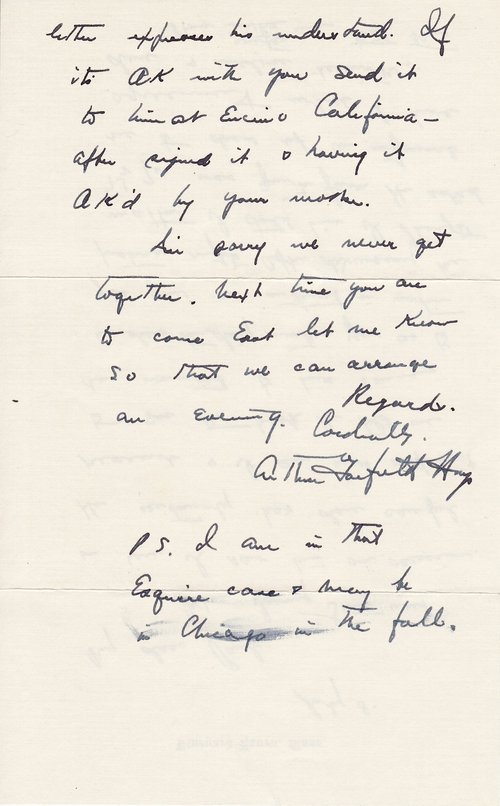 letter expresses his understand. If
its OK with you send it
to him at Encino California –
after signed it & having it
OK'd by your mother.
Am sorry we never get
together. Next time you are
to come East let me know
so that we can arrange
an evening. Regards.
Cordially.
Arthur Garfield Hays
P S. I am in that
Esquire case & may be
in Chicago in the fall.